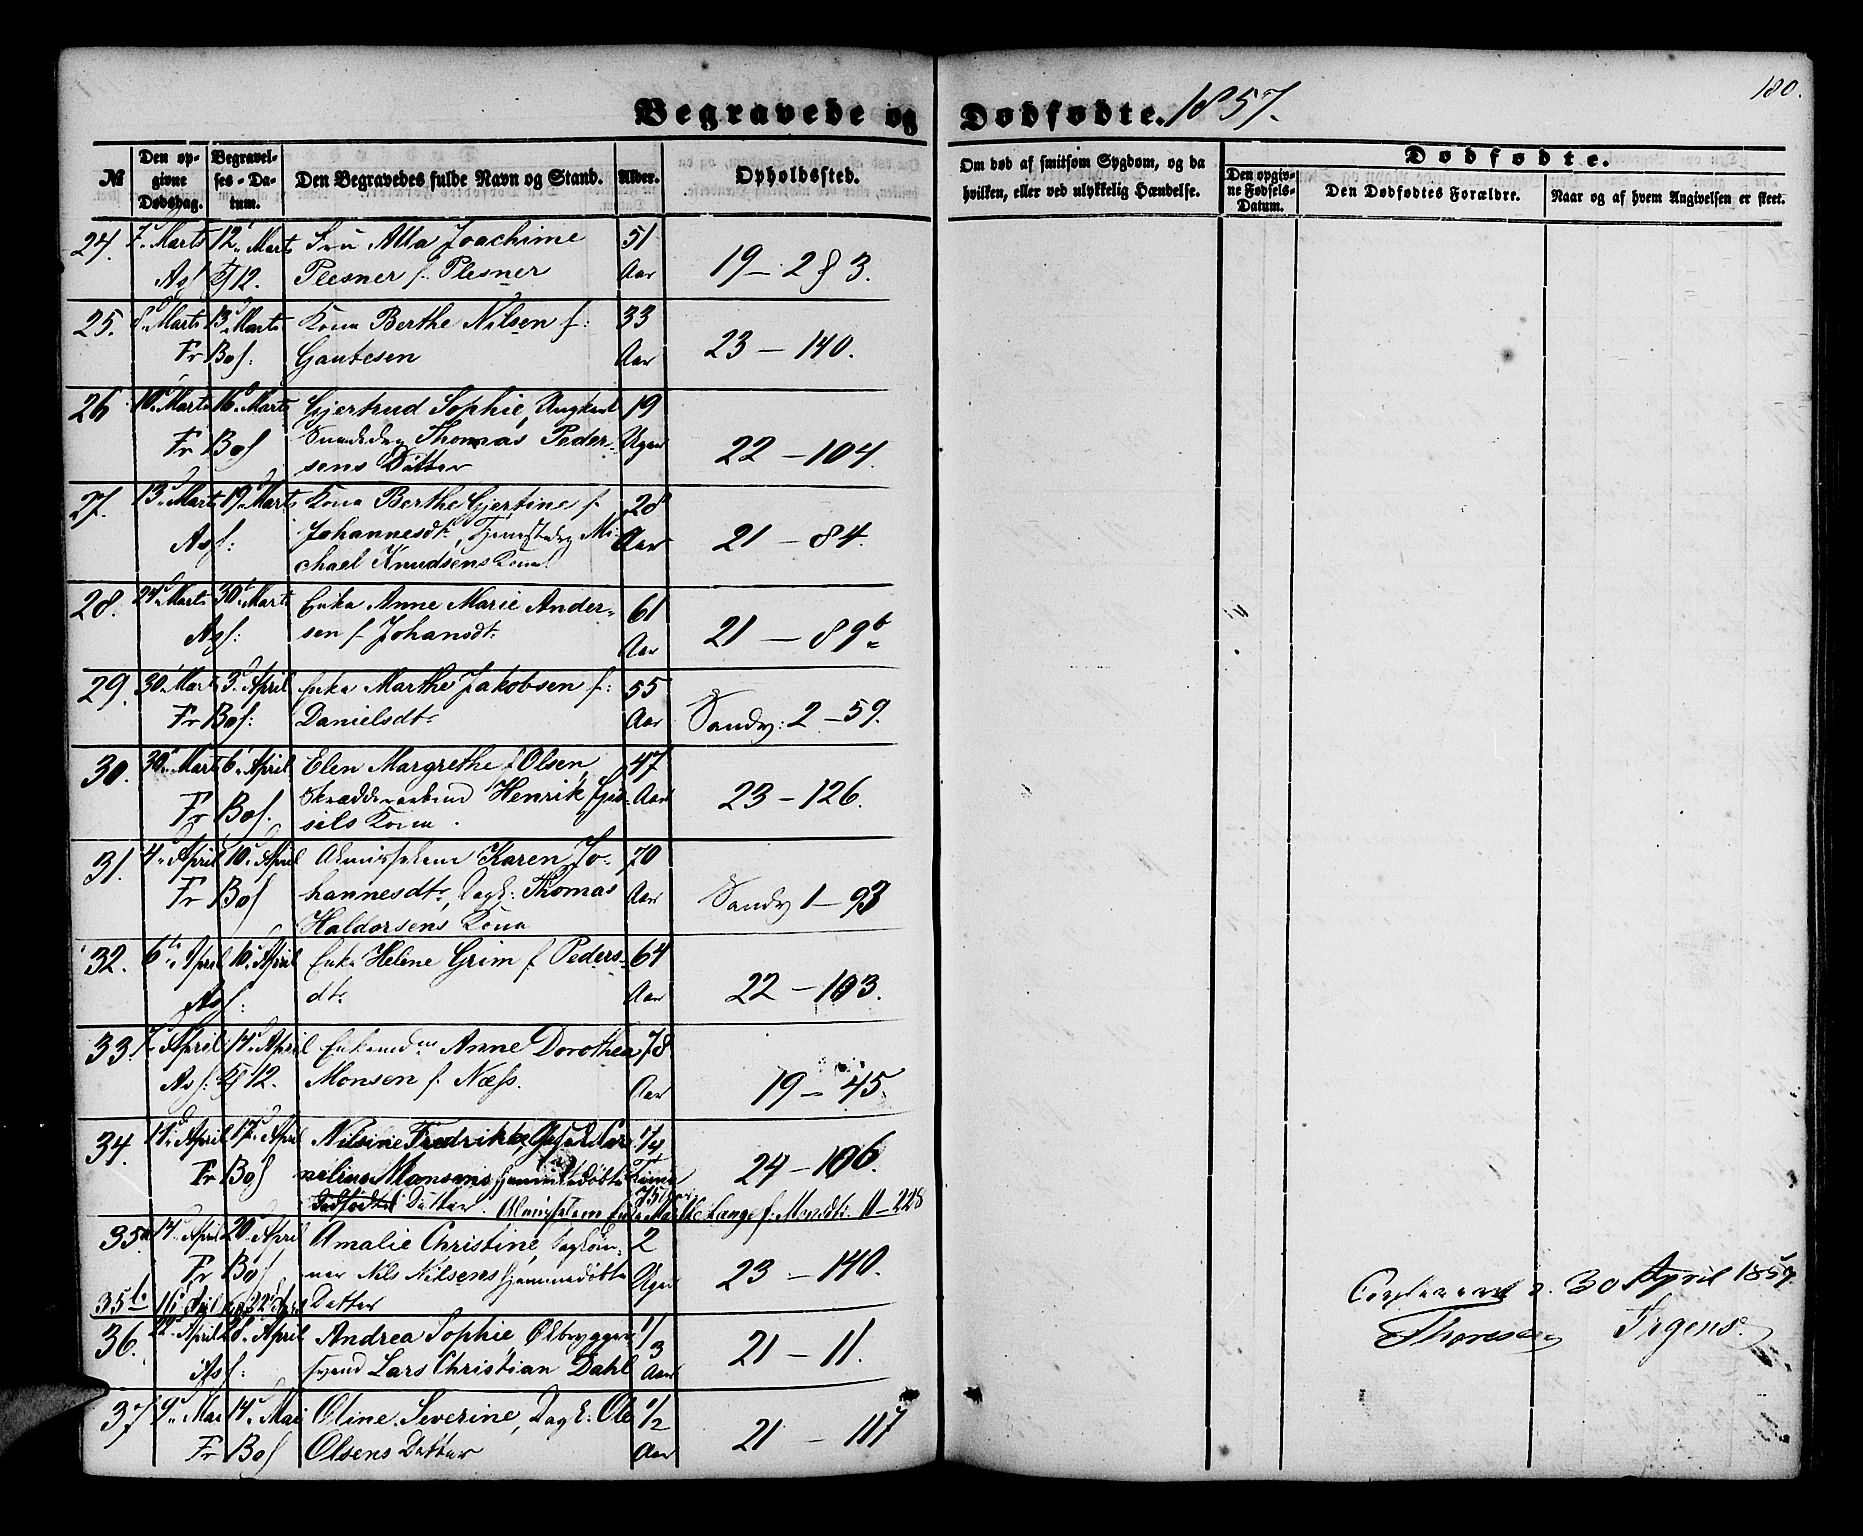 180.
Begravede og Dødfødte. 1857.
№
Den opgivne Dødsdag.
Begravelses-Datum.
Den Begravedes fulde Navn og Stand.
Alder.
Opholdssted.
Om død af smitsom Sygdom, og da hvilken, eller ved ulykkelig Hændelse.
Dødfødte.
Den opgivne Fødsels-Datum.
Den Dødfødtes Forældre.
Naar og af hvem Angivelsen er skeet.
24. 7 Marts 12 Marts Fru Alla Joachime 51
Plesner f. Plesner Aar 19 – 2 & 3.
25. 8 Marts 13 Marts Kona Berthe Nilsen f: 33
Fr Bof: Gautesen Aar 23 – 140.
26 10 Marts 16 Marts Gjertrud Sophie, 19
Fr Bof Thomas Peder- Uger 22 – 104.
sens Datter
27. 13 Marts 19 Marts Kona Berthe Gjertine f 28
Asf: Johannesdt., Mi- Aar 21 – 84.
chael Knudsens Kona
28. 24 Marts 30 Marts Enke Anne Marie Ander- 61
Asf: sen f. Johansdt: Aar 21 – 89 b
29. 30 Marts 3 April Enke Marthe Jakobsen f: 55
Fr Bof: Danielsdt. Aar Sandv: 2 – 59.
30. 30 Marts 6 April Elen Margrethe f Olsen, 47
Fr Bof. Henrik Aar 23 – 126.
sels Kona.
31. 4 April 10 April Karen Jo- 70
Fr Bof hannesdt., Dagk: Thomas Aar Sandv 1 – 93
Haldorsens Kona
32. 6 April 10 April Enke Helene Grim f Peders- 64
Asf: dt. Aar 22 – 103.
33. 7 April 14 April Anne Dorothea 78
Asf: Monsen f. Næss. Aar 19 – 45.
34. 11 April 17 April Nilsine Fredrikke, Cor 1/4
Fr Bof nelius Monsens hjemmedøbte Time 24 – 106.
Dødfødte Datter.
Almisselem Enke Marthe Lange f: Monsdt: 11 – 228
35a 14 April 20 April Amalie Christine, 2
Fr Bof Nils Nilsens hjemmedøbte Uger 23 – 140.
35b 16 April 22 Datter
36. 22 April 28 April Andrea Sophie, Ølbrygger 1/3
Asf: svend Lars Christian Dahl Aar 21 – 11.
37 9 Mai 14 Mai Oline Severine, Dagk: Ole 1/2
Fr Bof Olsens Datter Aar 21 – 117
Confereret d. 30 April 1857.
Thoresen Irgens.